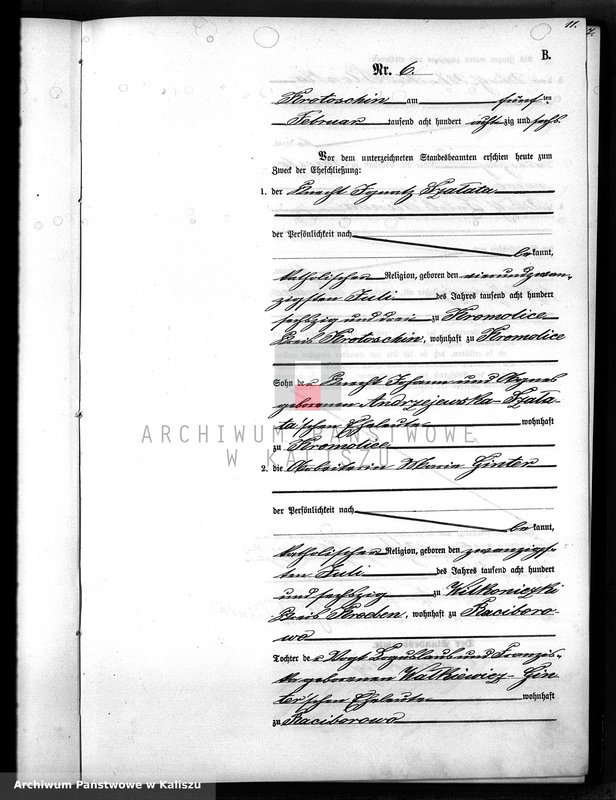 11.
B.
Nr. 6.
Krotoschin am fünften
Februar tausend acht hundert achtzig und sechs
Vor dem unterzeichneten Standesbeamten erschien heute zum
Zweck der Eheschließung:
1. der Knecht Ignatz Szalata
der Persönlichkeit nach
bekannt,
katholischer Religion, geboren den vierundzwan-
zigsten Juli des Jahres tausend acht hundert
sechszig und drei zu Kromolice
Kreis Krotoschin, wohnhaft zu Kromolice
Sohn der Knecht Johann und Agnes
geborenen Andrzejewska-Szala-
ta'schen Eheleute wohnhaft
zu Kromolice
2. die Arbeiterin Marie Ginter
der Persönlichkeit nach
bekannt,
katholischer Religion, geboren den zwanzigs-
ten Juli des Jahres tausend acht hundert
und sechszig zu Wilkoniczki
Kreis Kroeben, wohnhaft zu Raciboro-
wo
Tochter der Vogt Boguslaus und Franzis-
ka geborenen Walkiewicz-Gin-
ter'schen Eheleute wohnhaft
zu Raciborowo
ARCHIWUM PAŃSTWOWE
W KALISZU
Archiwum Państwowe w Kaliszu